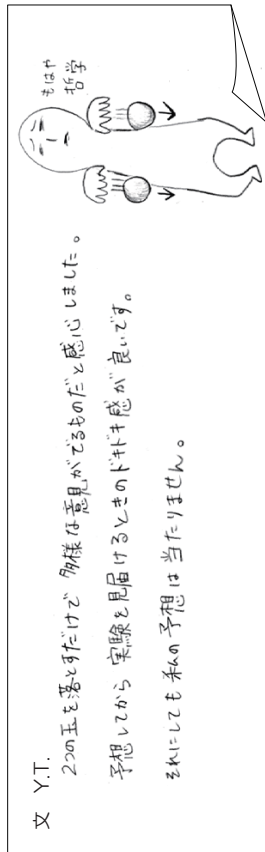 文 Y.T.
2つの玉を落とすだけで 多様な意見がでるものだと感心しました。
予想してから 実験を見届けるときのドキドキ感が 良いです。
それにしても 私の予想は 当たりません。
もはや
哲学